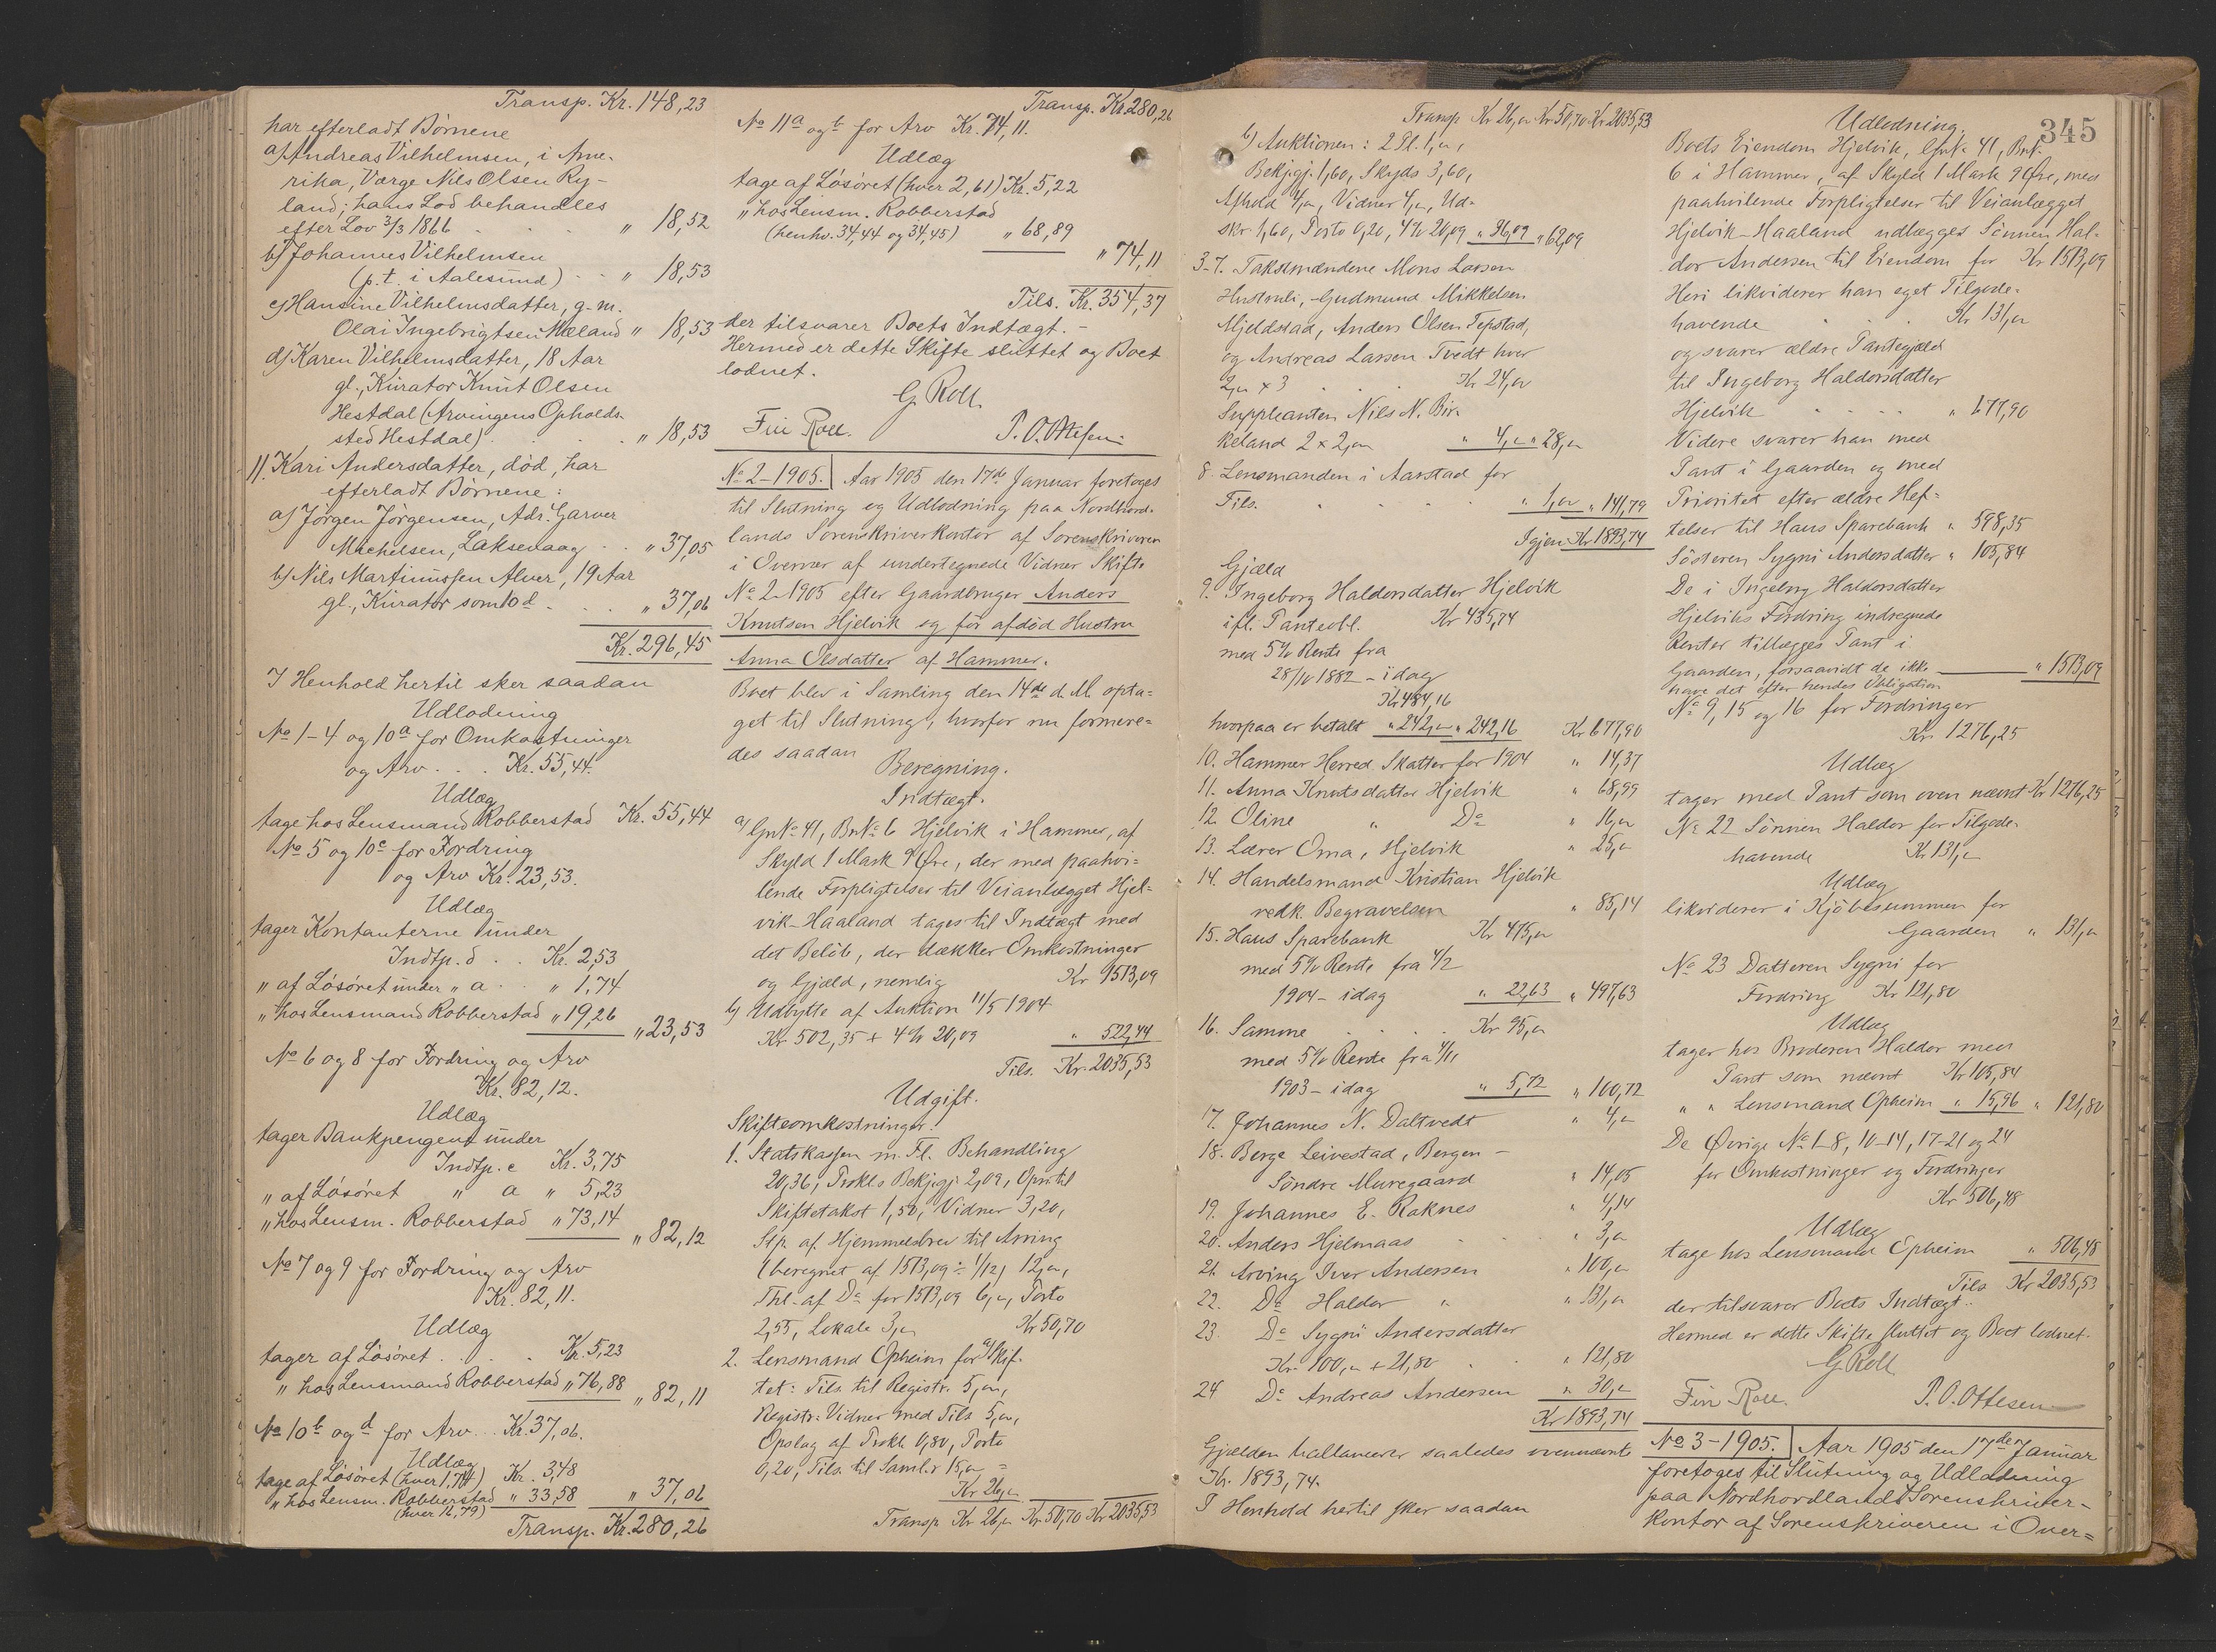 Transp. Kr. 148,23
har efterladt Børnene
a) Andreas Vilhelmsen, i Ame-
rika, Værge Nils Olsen Ry-
land; hans Lod behandles
efter Lov 3/3 1866 . . . " 18,52
b) Johannes Vilhelmsen
(p.t. i Aalesund) . . " 18,53
c) Hansine Vilhelmsdatter, g. m.
Olai Ingebrigtsen Mæland " 18,53
d) Karen Vilhelmsdatter, 18 Aar
gl., Kurator Knut Olsen
Hestdal (Arvingens Opholds-
sted Hestdal) . . . " 18,53
11. Kari Andersdatter, død, har
efterladt Børnene:
a) Jørgen Jørgensen, Adr. Garver
Michelsen, Laksevaag . . " 37,05
b) Nils Martinussen Alver, 19 Aar
gl., Kurator som 10 d . . . " 37,06
Kr. 296,45
I Henhold hertil sker saadan
Udlodning
No 1-4 og 10a for Omkostninger
og Arv . . . Kr. 55,44.
Udlæg
tage hos Lensmand Robberstad Kr. 55,44
No 5 og 10c for Fordring
og Arv Kr. 23,53.
Udlæg
tager Kontanterne under
Indtp. d . . Kr. 2,53
" af Løsøret under " a . . " 1,74
" hos Lensmand Robberstad " 19,26 " 23,53
No 6 og 8 for Fordring og Arv
Kr. 82,12.
Udlæg
tager Bankpengene under
Indtp. c Kr. 3,75
" af Løsøret " a " 5,23
" hos Lensm. Robberstad " 73,14 " 82,12
No 7 og 9 for Fordring og Arv
Kr. 82,11.
Udlæg
tager af Løsøret . . . Kr. 5,23
" hos Lensmand Robberstad " 76,88 " 82,11
No 10b og d for Arv . . Kr. 37,06.
Udlæg
tage af Løsøret (hver 1,74) Kr. 3,48
" hos Lensm. Robberstad " 33,58 " 37,06
(hver 16,79)
Transp. Kr. 280,26
Transp. Kr. 280,26
No 11a og b for Arv Kr. 74,11.
Udlæg
tage af Løsøret (hver 2,61) Kr. 5,22
" hos Lensm. Robberstad
(henhv. 34,44 og 34,45) " 68,89
" 74,11
Tils. Kr. 354,37
der tilsvarer Boets Indtægt. -
Hermed er dette Skifte sluttet og Boet
lodnet.
G. Roll.
Finn Roll. P. O. Ottesen
No 2-1905. Aar 1905 den 17de Januar foretoges
til Slutning og Udlodning paa Nordhord-
lands Sorenskriverkontor af Sorenskriveren
i Overvær af undertegnede Vidner Skifte
No 2-1905 efter Gaardbruger Anders
Knutsen Hjelvik og før afdød Hustru
Anna Olsdatter af Hammer.
Boet blev i Samling den 14de d. M. opta-
get til Slutning, hvorfor nu formere-
des saadan
Beregning.
Indtægt.
a) GnNo 41, BnNo 6 Hjelvik i Hammer, af
Skyld 1 Mark 9 Øre, der med paahvi-
lende Forpligtelser til Veianlægget Hjel-
vik-Haaland tages til Indtægt med
det Beløb, der dækker Omkostninger
og Gjæld, nemlig Kr 1513,09
b) Udbytte af Auktion 11/5 1904
Kr 502,35 + 4% 20,09 " 522,44
Tils. Kr. 2035,53
Udgift.
Skifteomkostninger:
1. Statskassen m. Fl. Behandling
20,36, Prokls Bekjgj. 2,09, Opn. til
Skiftetakst 1,50, Vidner 3,20,
Stp. af Hjemmelsbrev til Arving
(beregnet af 1513,09 ÷ 1/12) 12,00,
Thl. af Do for 1513,09 6,00, Porto
2,55, Lokale 3,00 Kr 50,70
2. Lensmand Opheim for a) Skif-
tet: Tils. til Registr. 5,00,
Registr.: Vidner med Tils 5,00,
Opslag af Prokl. 0,80, Porto
0,20, Tils. til Saml.r 15,00 =
Kr 26,00
Transp Kr 26,00 Kr. 50,70 Kr 2035,53
Transp Kr 26,00 Kr 50,70 Kr 2035,53
b) Auktionen: 2 Pl. 1,00,
Bekjgj. 1,60, Skyds 3,60,
Afhold 4,00, Vidner 4,00, Ud-
skr 1,60, Porto 0,20, 4% 20,09 " 36,09 " 62,09
3-7. Takstmændene Mons Larsen
Hustveli, Gudmund Mikkelsen
Mjeldstad, Anders Olsen Tepstad,
og Andreas Larsen Tvedt hver
2,00 x 3 . . . Kr 24,00
Suppleanten Nils N. Bir-
keland 2 x 2,00 " 4,00 " 28,00
8. Lensmanden i Aarstad for
Tils. . . . " 1,00 " 141,79
Igjen Kr 1893,74
Gjæld
9. Ingeborg Haldorsdatter Hjelvik
ifl. Panteobl. Kr 435,74
med 5% Rente fra
28/10 1882 - idag
Kr 484,16
hvorpaa er betalt " 242,00 " 242,16 Kr 677,90
10. Hammer Herred Skatter for 1904 " 14,37
11. Anna Knutsdatter Hjelvik " 68,99
12. Oline " Do " 16,00
13. Lærer Oma, Hjelvik " 25,00
14. Handelsmand Kristian Hjelvik
vedk. Begravelsen " 85,14
15. Haus Sparebank Kr 475,00
med 5% Rente fra 4/2
1904 - idag " 22,63 " 497,63
16. Samme . . . . Kr 95,00
med 5% Rente fra 4/11
1903 - idag " 5,72 " 100,72
17. Johannes N. Daltvedt " 4,00
18. Berge Leivestad, Bergen -
Søndre Muregaard " 14,05
19. Johannes E. Raknes " 4,14
20. Anders Hjelmaas . . " 3,00
21. Arving Iver Andersen " 100,00
22. Do Haldor " " 131,00
23. Do Sygni Andersdatter
Kr. 100,00 + 21,80 . . " 121,80
24 Do Andreas Andersen " 30,00
Kr 1893,74
Gjælden ballancerer saaledes ovennævnte
Kr. 1893,74.
I Henhold hertil sker saadan
345
Udlodning.
Boets Eiendom Hjelvik, GnNo 41, Bn.
6 i Hammer, af Skyld 1 Mark 9 Øre, med
paahvilende Forpligtelser til Veianlægget
Hjelvik-Haaland udlægges Sønnen Hal-
dor Andersen til Eiendom for Kr 1513,09
Heri likviderer han eget Tilgode-
havende . . . Kr 131,00
og svarer ældre Pantegjæld
til Ingeborg Haldorsdatter
Hjelvik . . . . " 677,90
Videre svarer han med
Pant i Gaarden og med
Prioritet efter ældre Hef-
telser til Haus Sparebank " 598,35
Søsteren Sygni Andersdatter " 105,84
De i Ingeborg Haldorsdatter
Hjelviks Fordring indregnede
Renter tillægges Pant i
Gaarden, forsaavidt de ikke " 1513,09
have det efter hendes Obligation
No 9, 15 og 16 for Fordringer
Kr. 1276,25
Udlæg
tager med Pant som oven nævnt Kr 1276,25
No 22 Sønnen Haldor for Tilgode-
havende Kr 131,00
Udlæg
likviderer i Kjøbesummen for
Gaarden " 131,00
No 23 Datteren Sygni for
Fordring Kr 121,80
Udlæg
tager hos Broderen Haldor med
Pant som nævnt Kr 105,84
" " Lensmand Opheim " 15,96 " 121,80
De Øvrige No 1-8, 10-14, 17-21 og 24
for Omkostninger og Fordringer
Kr 506,48
Udlæg
tage hos Lensmand Opheim " 506,48
Tils Kr 2035,53
der tilsvarer Boets Indtægt.
Hermed er dette Skifte sluttet og Boet lodnet.
G Roll
Finn Roll. P. O. Ottesen
No 3-1905. Aar 1905 den 17de Januar
foretoges til Slutning og Udlodning
paa Nordhordlands Sorenskriver-
kontor af Sorenskriveren i Over=